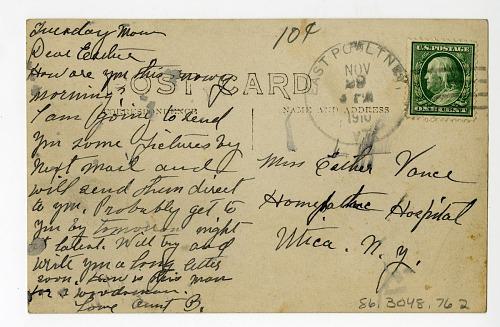 Tuesday Morn
Dear Esther
How are you this snowy
morning?
I am going to send
you some pictures by
next mail and
will send them direct
to you. Probably get to
you by tomorrow night
latest. Will try and
write you a long letter
soon. How is this man
for a woodsman.
Love Aunt B.
10¢
POST CARD
CORRESPONDENCE
NAME AND ADDRESS
EAST POULTNEY
NOV
29
PM
1910
VT.
U.S. POSTAGE
ONE CENT
Miss Esther Vance
Homepathic Hospital
Utica. N.Y.
86.3048.762